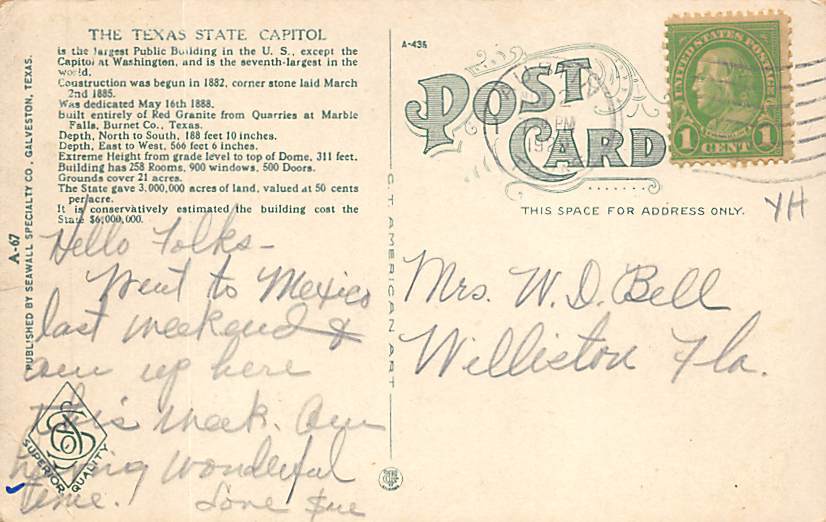 THE TEXAS STATE CAPITOL
is the largest Public Building in the U. S., except the
Capitol at Washington, and is the seventh-largest in the
world.
Construction was begun in 1882, corner stone laid March
2nd 1885.
Was dedicated May 16th 1888.
Built entirely of Red Granite from Quarries at Marble
Falls, Burnet Co., Texas.
Depth, North to South, 188 feet 10 inches.
Depth, East to West, 566 feet 6 inches.
Extreme Height from grade level to top of Dome, 311 feet.
Building has 258 Rooms, 900 windows, 500 Doors.
Grounds cover 21 acres.
The State gave 3,000,000 acres of land, valued at 50 cents
per acre.
It is conservatively estimated the building cost the
State $6,000,000.
Hello Folks-
Went to Mexico
last weekend &
am up here
this week. Am
having wonderful
time. Love Sue
A-67
PUBLISHED BY SEAWALL SPECIALTY CO., GALVESTON, TEXAS.
SUPERIOR QUALITY
C. T. AMERICAN ART
A-436
POST
CARD
PM
UNITED STATES POSTAGE
FRANKLIN
1 CENT 1
THIS SPACE FOR ADDRESS ONLY.
YH
Mrs. W. D. Bell
Williston Fla.